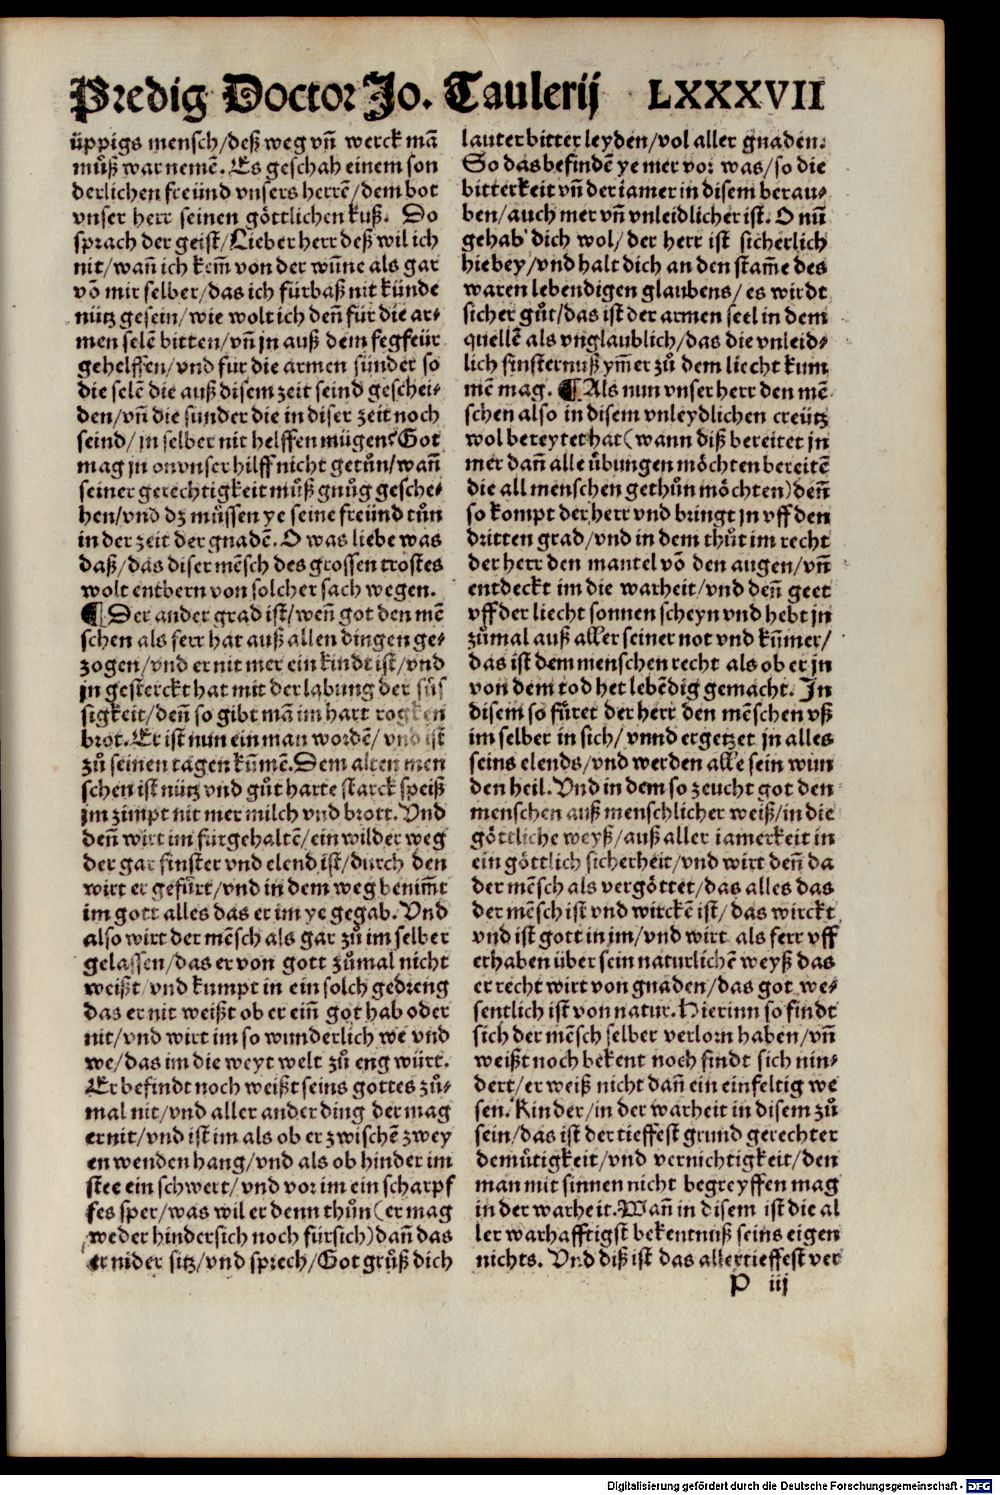 Predig Doctor Jo. Taulerij LXXXVII
üppigs mensch/deß weg vñ werck mā
muͦß war nemē. Es geschah einem son
derlichen freünd vnsers herrē/dem bot
vnser herr seinen göttlichen kuß. Do
sprach der geist/Lieber herr deß wil ich
nit/wañ ich kem̄ von der wun̄e als gar
vō mir selber/das ich fürbaß nit künde
nütz gesein/wie wolt ich den̄ für die ar-
men selē bitten/vñ jn auß dem fegfeür
gehelffen/vnd für die armen sünder so
die selē die auß disem zeit seind geschei-
den/vñ die sunder die in diser zeit noch
seind/jn selber nit helffen mügen? Got
mag jn on vnser hilff nicht getuͦn/wañ
seiner gerechtigkeit muͦß gnuͦg gesche-
hen/vnd dz müssen ye seine freünd tuͦn
in der zeit der gnadē. O was liebe was
daß/das diser mēsch des grossen trostes
wolt entbern von solcher sach wegen.
¶ Der ander grad ist/wen̄ got den mē
schen als ferr hat auß allen dingen ge-
zogen/vnd er nit mer ein kindt ist/vnd
jn gesterckt hat mit der labung der süs
sigkeit/den̄ so gibt mā im hart rogken
brot. Er ist nun ein man wordē/vnd ist
zuͦ seinen tagen kum̄e. Dem alten men
schen ist nütz vnd guͦt harte starck speiß
jm zimpt nit mer milch vnd brott. Vnd
den̄ wirt im fürgehaltē/ein wilder weg
der gar finster vnd elend ist/durch den
wirt er gefürt/vnd in dem weg benim̄t
im gott alles das er im ye gegab. Vnd
also wirt der mēsch als gar zuͦ im selber
gelassen/das er von gott zuͦmal nicht
weißt/vnd kumpt in ein solch gedreng
das er nit weißt ob er ein̄ got hab oder
nit/vnd wirt im so wunderlich we vnd
we/das im die weyt welt zuͦ eng würt.
Er befindt noch weißt seins gottes zuͦ-
mal nit/vnd aller ander ding der mag
er nit/vnd ist im als ob er zwischē zwey
en wenden hang/vnd als ob hinder im
stee ein schwert/vnd vor im ein scharpf
fes sper/was wil er denn thuͦn(er mag
weder hindersich noch fürsich)dañ das
er nider sitz/vnd sprech/Got gruͤß dich
lauter bitter leyden/vol aller gnaden.
So das befindē ye mer vor was/so die
bitterkeit vñ der iamer in disem berau-
ben/auch mer vñ vnleidlicher ist. O nun̄
gehab dich wol/der herr ist sicherlich
hie bey/vnd halt dich an den stam̄e des
waren lebendigen glaubens/es wirdt
sicher guͦt/das ist der armen seel in dem
quellē als vnglaublich/das die vnleid-
lich finsternuß ym̄er zuͦ dem liecht kum
mē mag. ¶ Als nun vnser herr den mē
schen also in disem vnleydlichen creütz
wol bereytet hat(wann diß bereitet jn
mer dañ alle übungen möchten bereitē
die all menschen gethuͦn möchten)den̄
so kompt der herr vnd bringt jn vff den
dritten grad/vnd in dem thuͦt im recht
der herr den mantel vō den augen/vñ
entdeckt im die warheit/vnd den̄ geet
vff der liecht sonnen scheyn vnd hebt jn
zuͦmal auß aller seiner not vnd kum̄er/
das ist dem menschen recht als ob er jn
von dem tod het lebēdig gemacht. In
disem so fuͤret der herr den mēschen vß
im selber in sich/vnnd ergetzet jn alles
seins elends/vnd werden alle sein wun
den heil. Vnd in dem so zeucht got den
menschen auß menschlicher weiß/in die
göttliche weyß/auß aller iamerkeit in
ein göttlich sicherheit/vnd wirt den̄ da
der mēsch als vergöttet/das alles das
der mēsch ist vnd wirckē ist/das wirckt
vnd ist gott in jm/vnd wirt als ferr vff
erhaben über sein naturlichē weyß das
er recht wirt von gnaden/das got we-
sentlich ist von natur. Hierinn so findt
sich der mēsch selber verlorn haben/vñ
weißt noch bekent noch findt sich nin-
dert/er weiß nicht dañ ein einfeltig we
sen. Kinder/in der warheit in disem zuͦ
sein/das ist der tieffest grund gerechter
demuͤtigkeit/vnd vernichtigkeit/den
man mit sinnen nicht begreyffen mag
in der warheit. Wañ in disem ist die al
ler warhafftigst bekentnuß seins eigen
nichts. Vnd diß ist das allertieffest ver
P iij
Digitalisierung gefördert durch die Deutsche Forschungsgemeinschaft - DFG